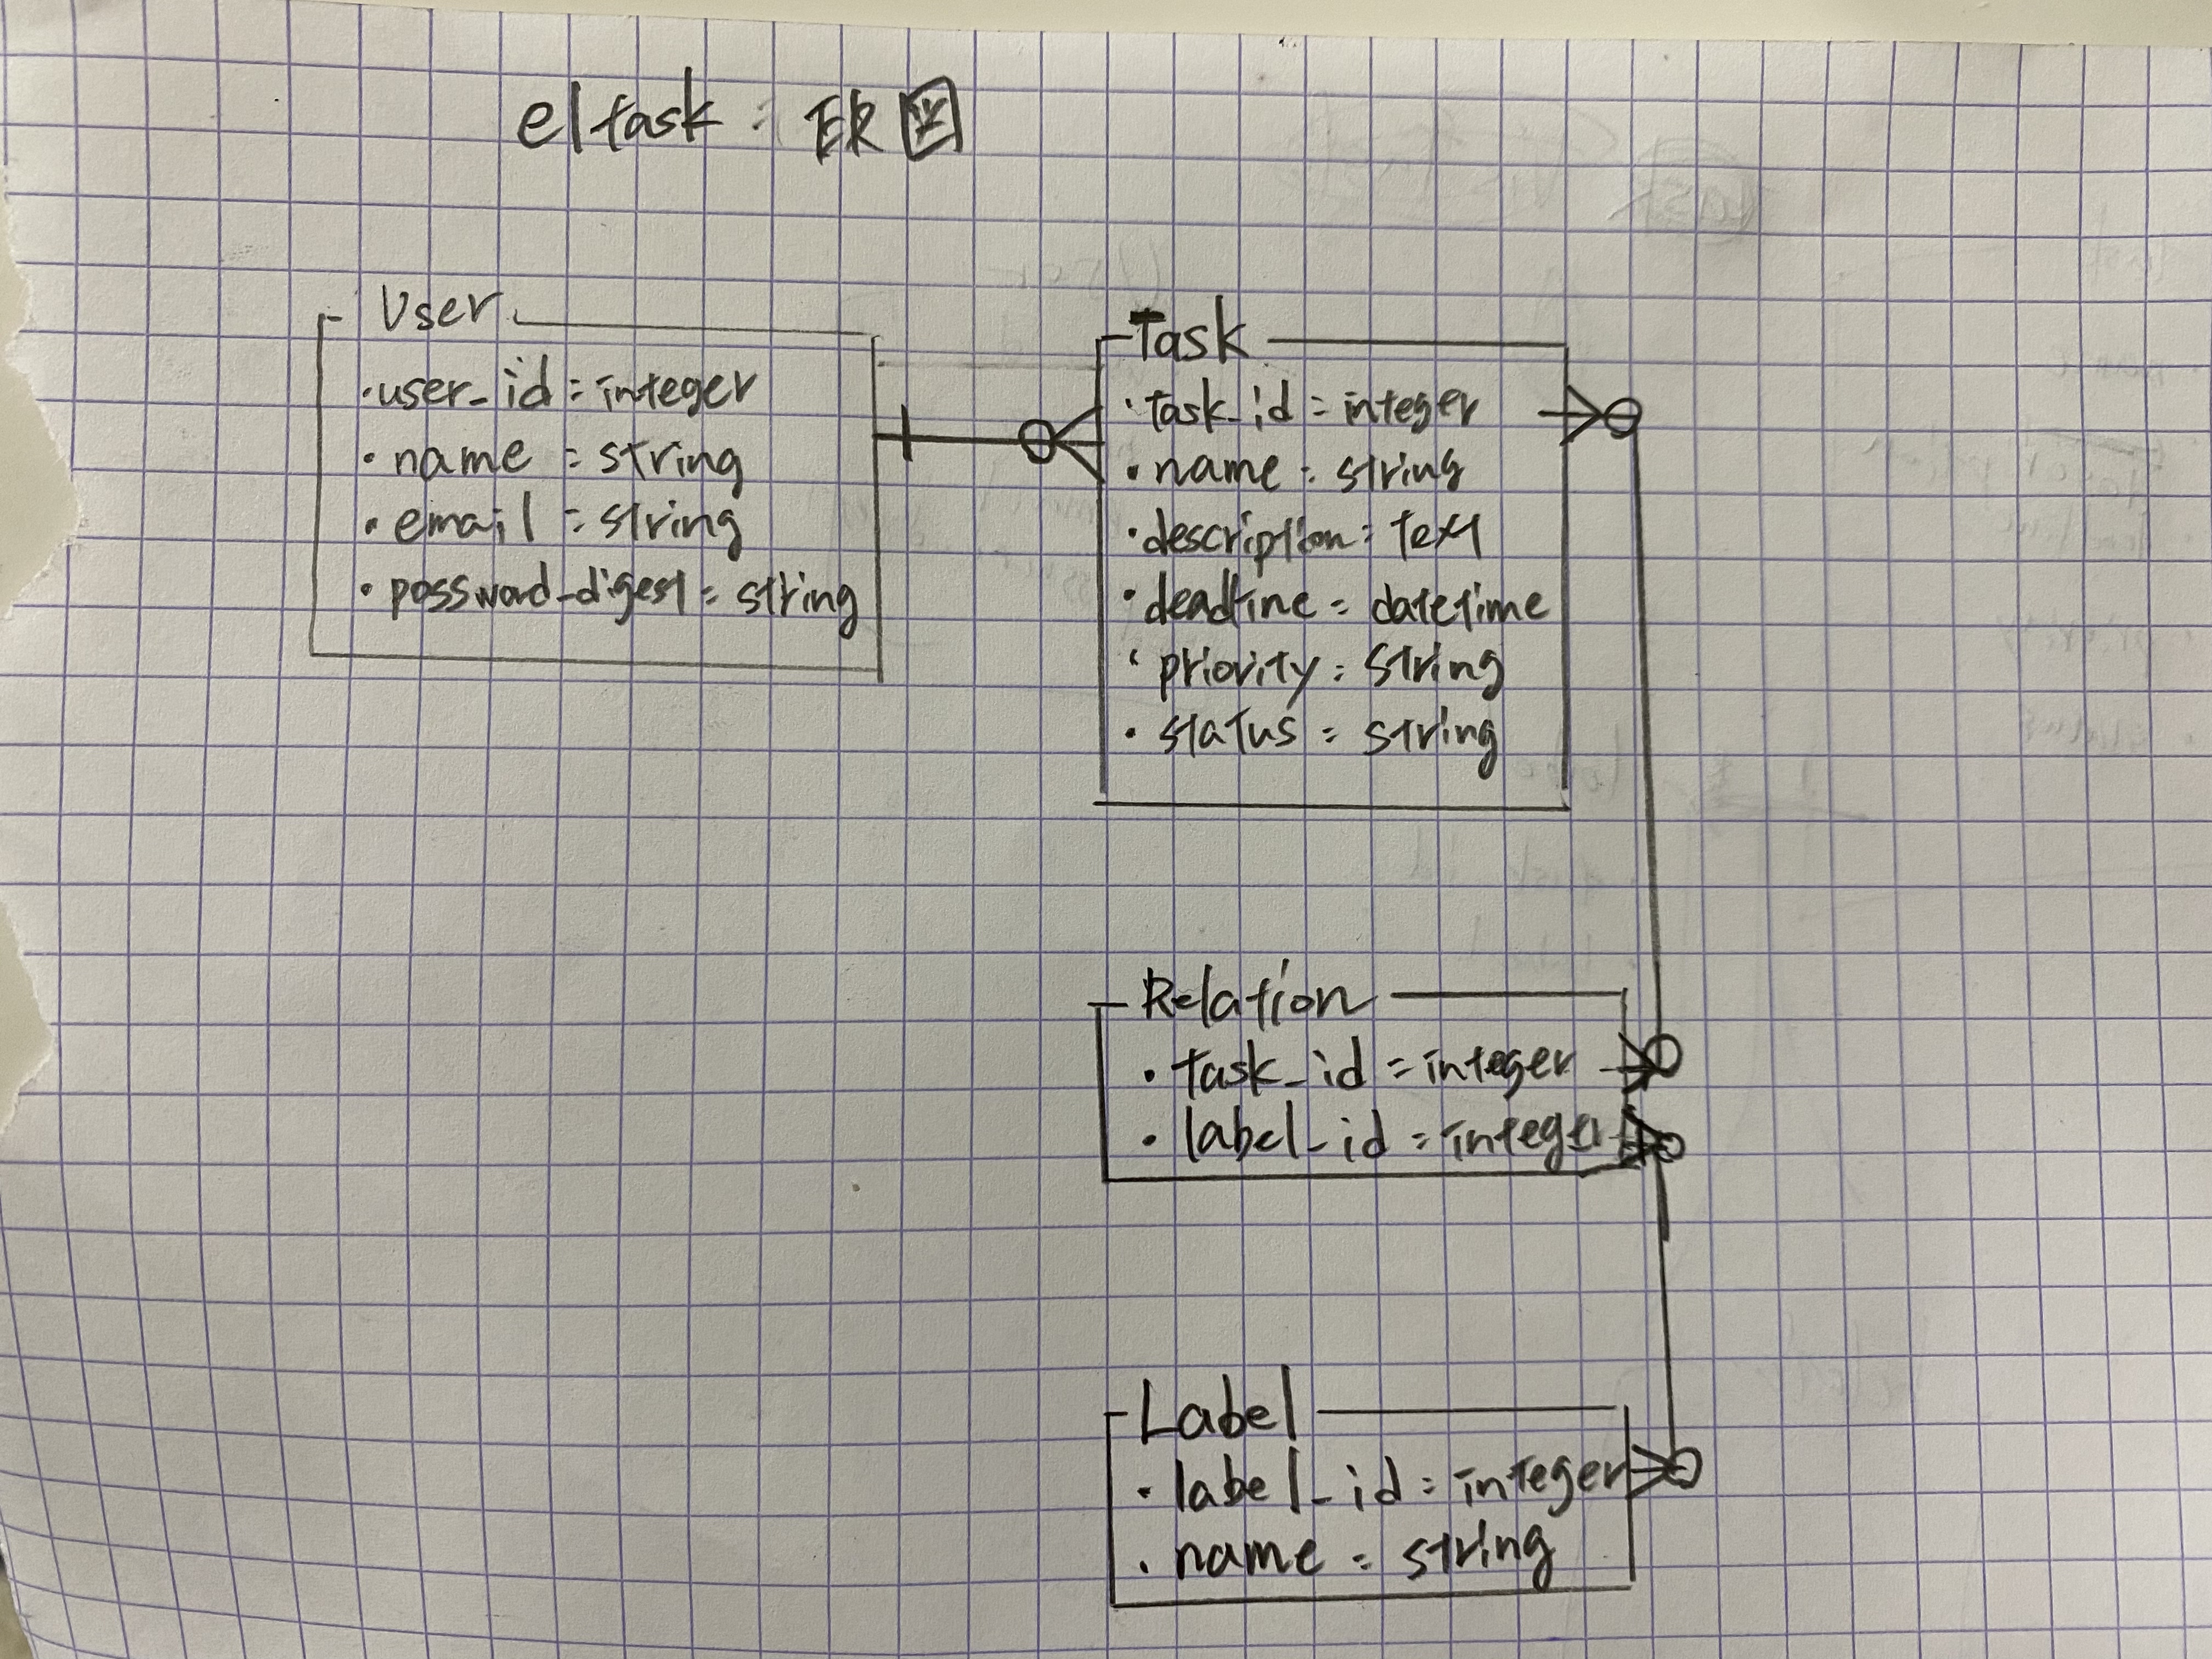 eltask : ER図
User
・user_id = integer
・name = string
・email = string
・possword_digest = string
Task
・task_id = integer
・name : string
・description = text
・deadline = datetime
・priority : string
・status = string
Relation
・task_id = integer
・label_id = integer
Label
・label_id = integer
・name = string